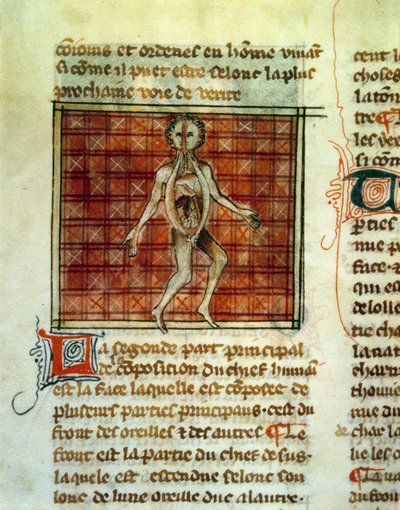 coioins et ordenes en hōme vivāt
si cōme il puet estre selonc la plus
prochaine voie de verite
La segonde part principal
de cōposition du chief humaī
est la face laquelle est composee de
plusieurs parties principaus · cest du
front des oreilles & des autres ¶ Le
front est la partie du chief de sus ·
laquele est estendue selonc son
lonc de lune oreille duc a lautre ·
cent l
choses
la tōm
tre ¶
les ver
si cōm
parties
nue p
face · &
delolle
tie cha
la nat
charn
thouue
mue du
de char la
lie les o
¶ La na
du front